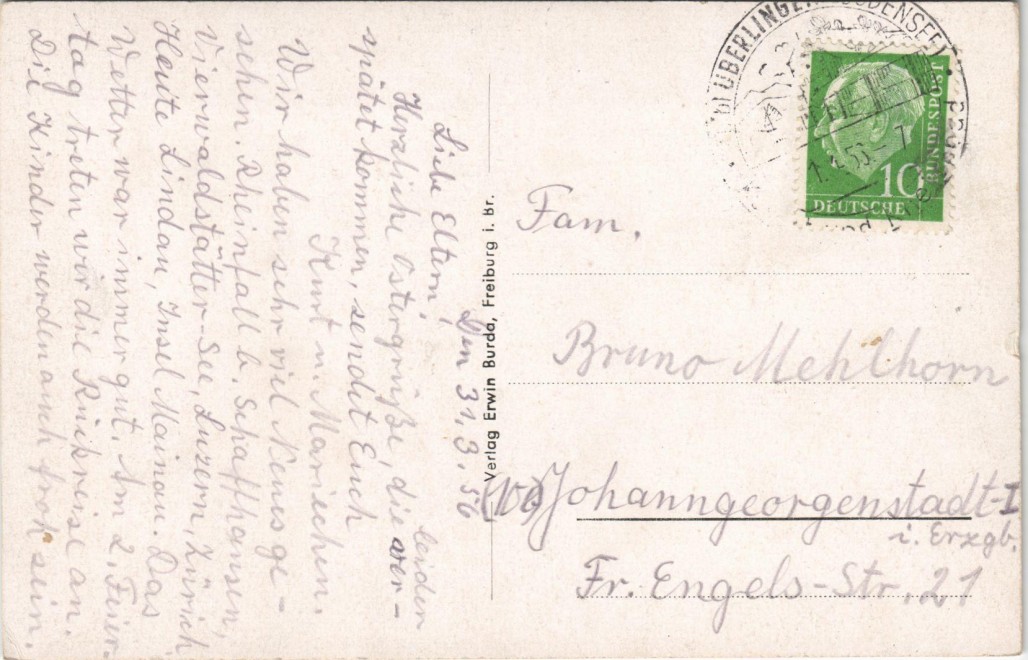 Den 31.3.56
Liebe Eltern!
Herzliche Ostergrüße, die leider
spätet kommen, sendet Euch
Kurt u. Mariechen.
Wir haben sehr viel Neues ge-
sehen. Rheinfall b. Schaffhausen,
Vierwaldstätter-See, Luzern, Zürich
Heute Lindau, Insel Mainau. Das
Wetter war immer gut. Am 2. Feier-
tag treten wir die Rückreise an.
Die Kinder werden auch froh sein.
Verlag Erwin Burda, Freiburg i. Br.
ÜBERLINGEN BODENSEE
DEUTSCHE
BUNDESPOST
10
Fam.
Bruno Mehlhorn
Johanngeorgenstadt-I
i. Erzgb.
Fr. Engels-Str. 21